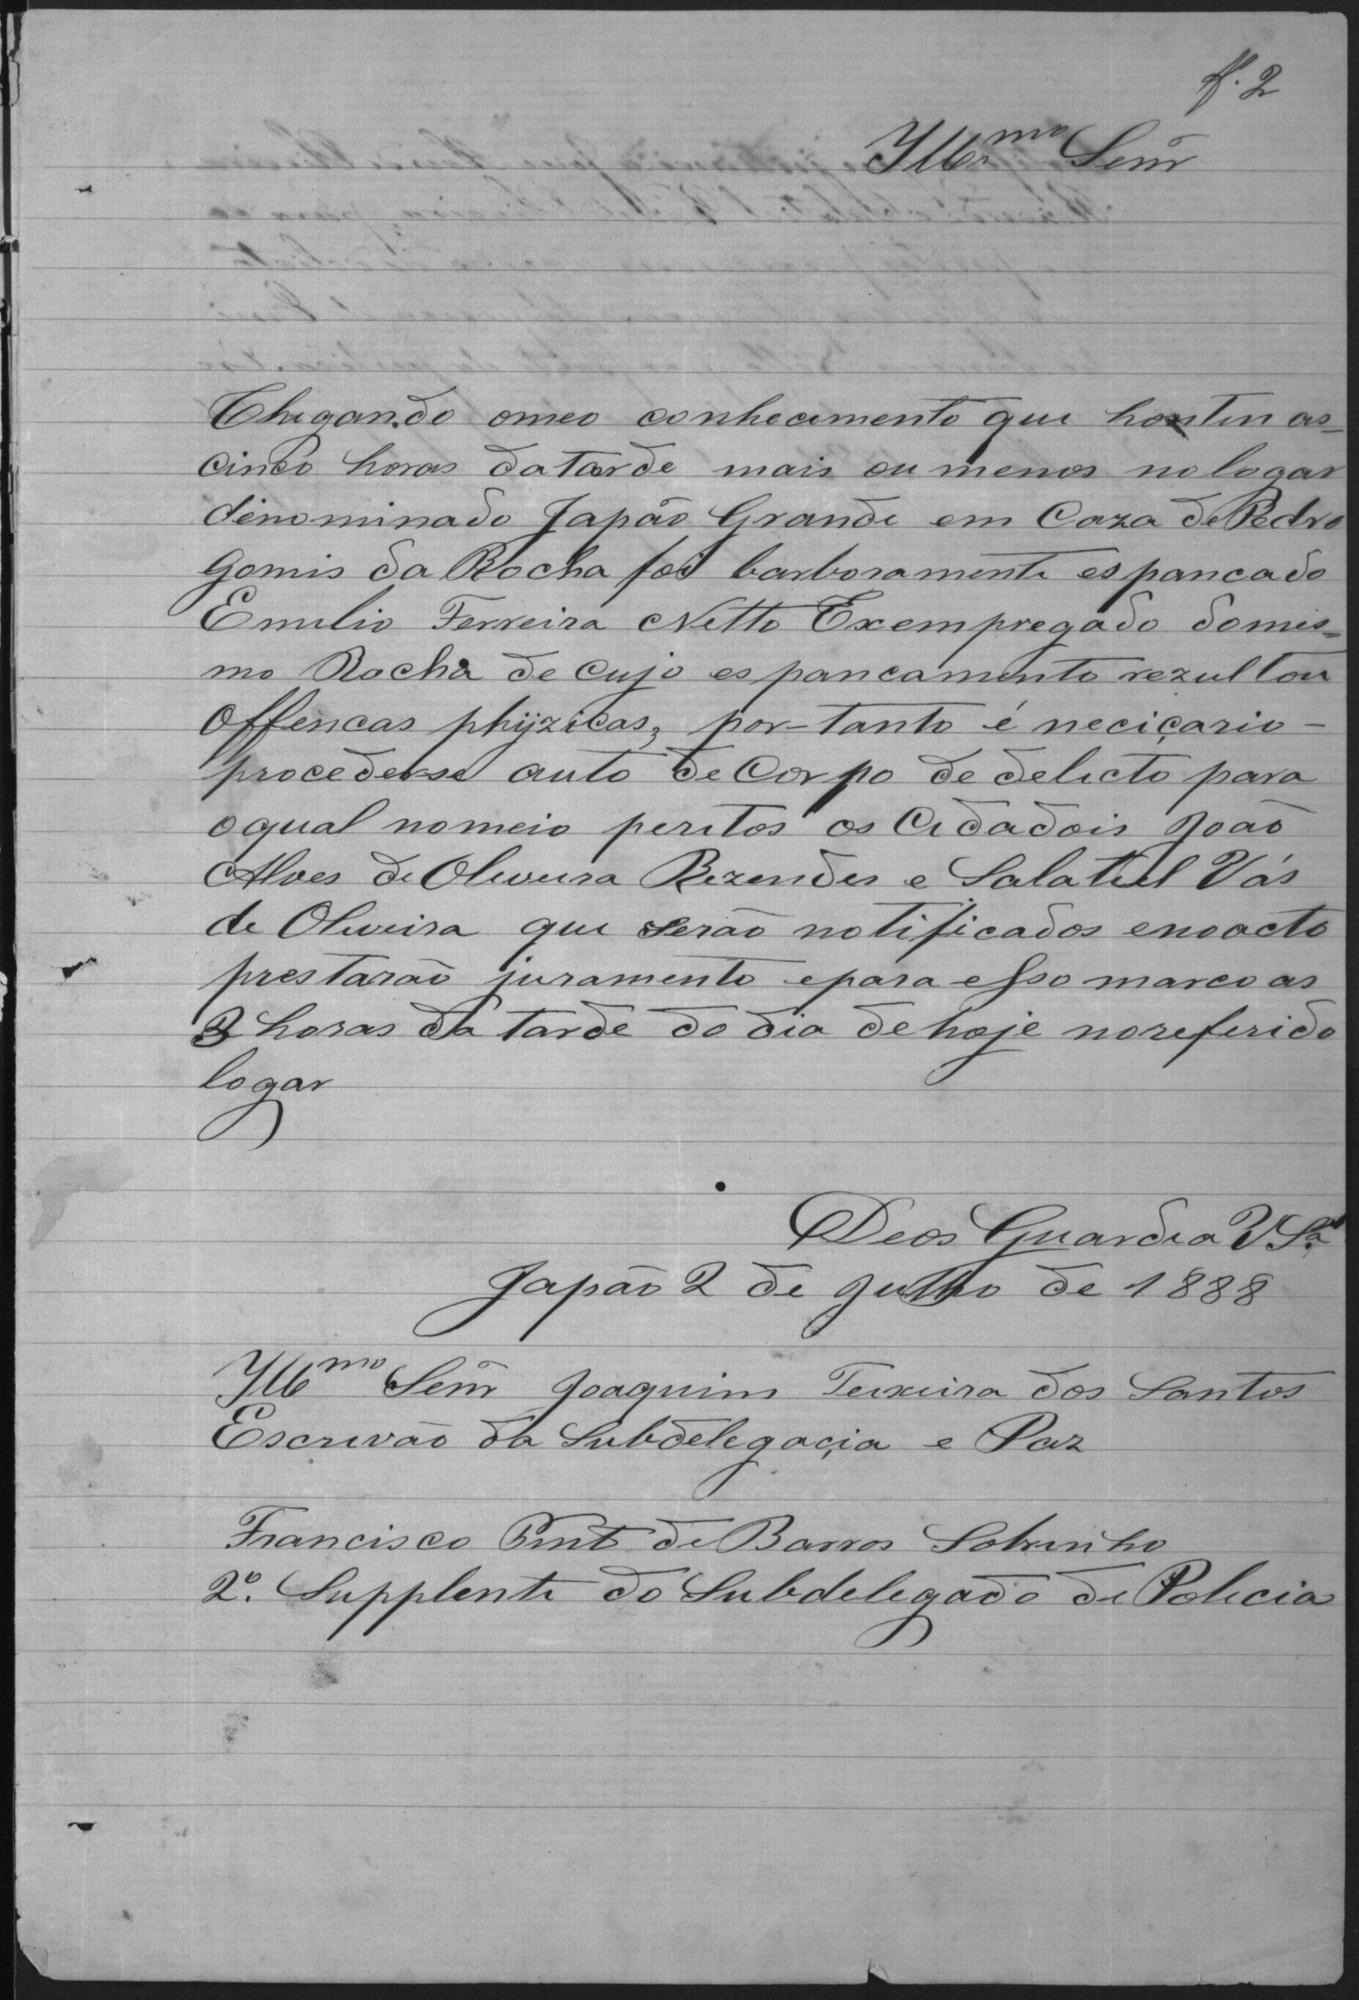 f. 2
Illmo Senr
Chegando omeo conhecimento que hontem as
cinco horas datarde mais ou menos no logar
denominado Japão Grande em Caza de Pedro
Gomis da Rocha foi barboramente espancado
Emilio Ferreira Netto Exempregado domes=
mo Rocha de cujo espancamento rezultou
Offencas phyzicas, por-tanto é neciçario -
proceder-se auto de Corpo de delicto para
oqual nomeio peritos os Cidadois João
Alves de Oliveira Rezendes e Salatiel Vás
de Oliveira que serão notificados enoacto
prestarão juramento epara esso marco as
3 horas da tarde do dia dehoje noreferido
logar
Deos Guardia VSa
Japão 2 de Julho de 1888
Illmo Senr Joaquim Teixeira dos Santos
Escrivão da Subdelegaçia e Paz
Francisco Pint de Barros Sobrinho
2º. Supplente do Subdelegado de Policia